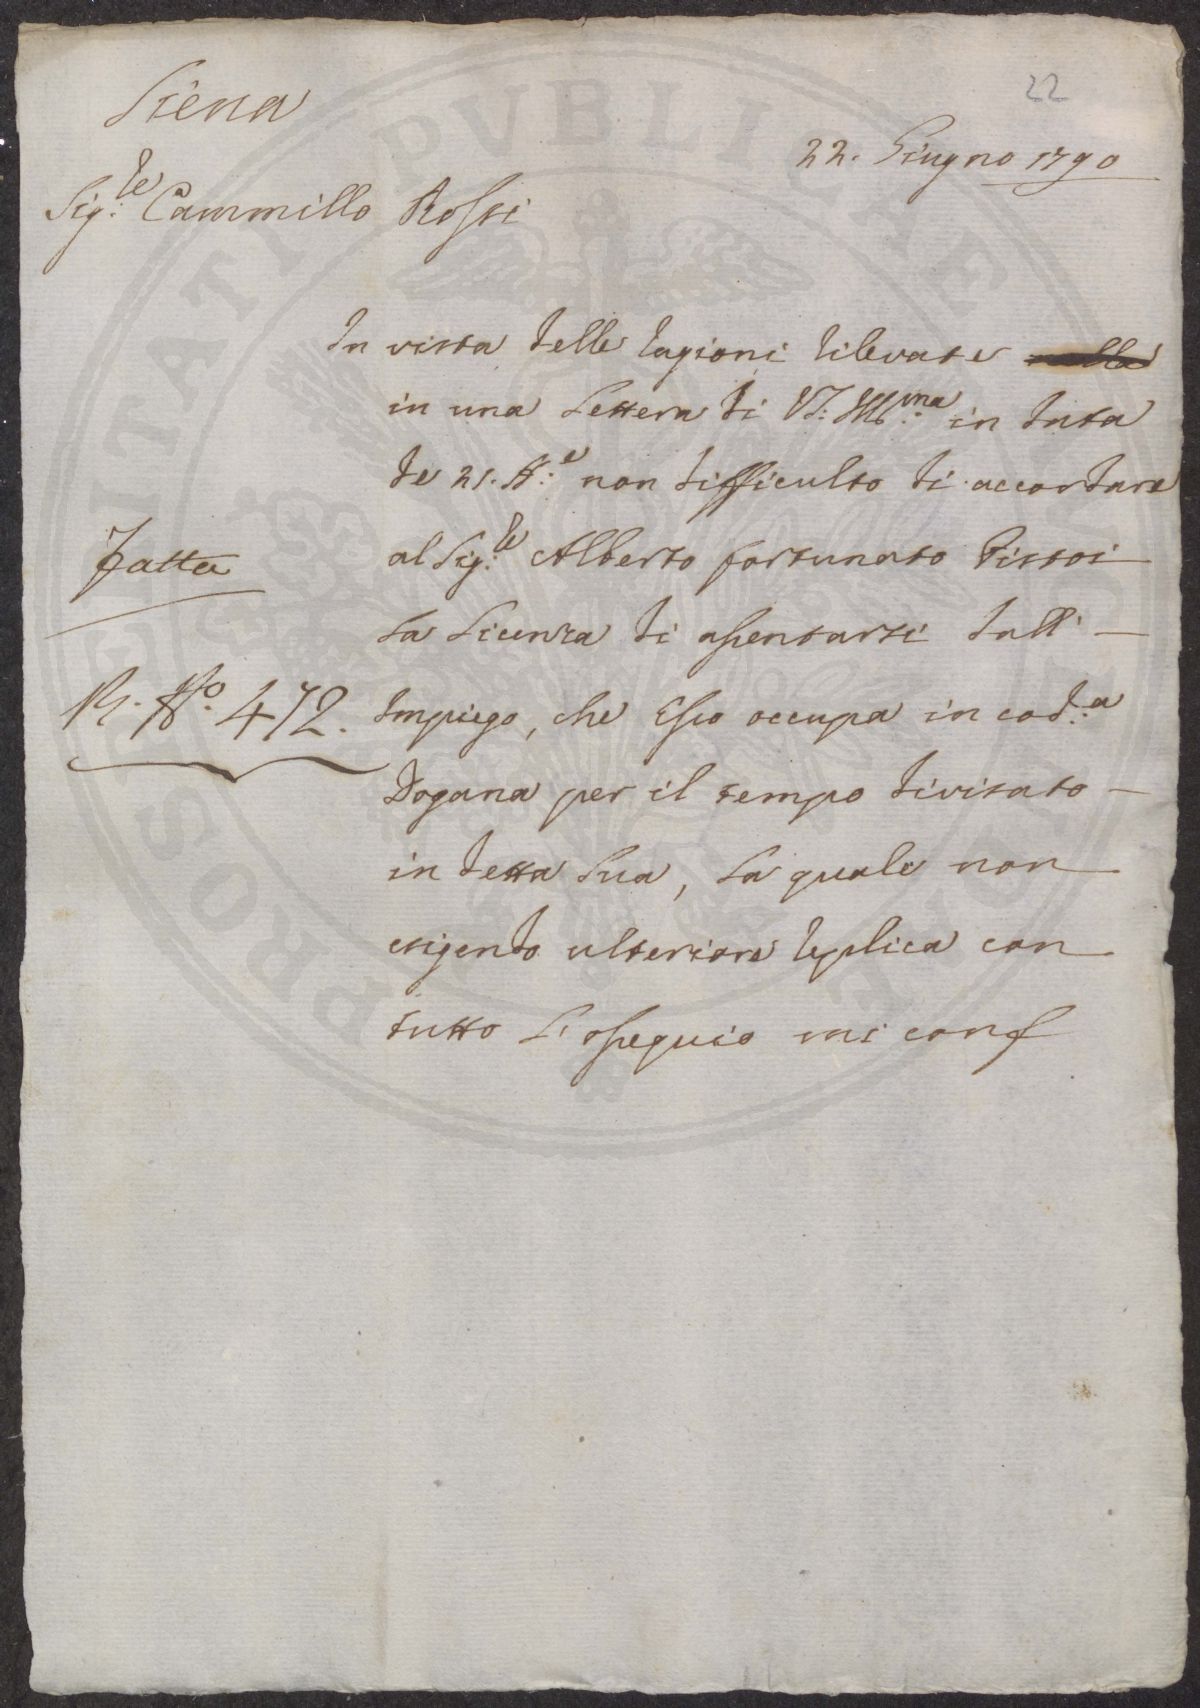 22
Siena
22. Giugno 1790
Sig:re Cammillo Rossi
In vista delle ragioni rilevate nella
in una Lettera di VS: Ill:ma in data
de 21. st:e non difficulto di accordare
al Sig:re Alberto fortunato Pistoi
La Licenza di assentarsi dall'
Impiego, che Esso occupa in cod:a
Dogana per il tempo divisato
in detta Sua, La quale non
esigendo ulteriore replica con
tutto L'ossequio mi conf
Fatta
R. No. 472.
PROSPERITATI PVBLICAE